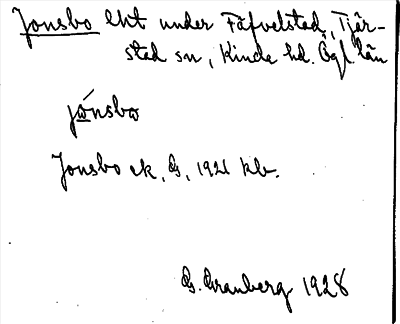 Jonsbo lht under Fäfvelstad, Tjär-
stad sn, Kinda hd. Ögl. län
jónsbo
Jonsbo ek, G, 1921 kb.
G. Granberg 1928